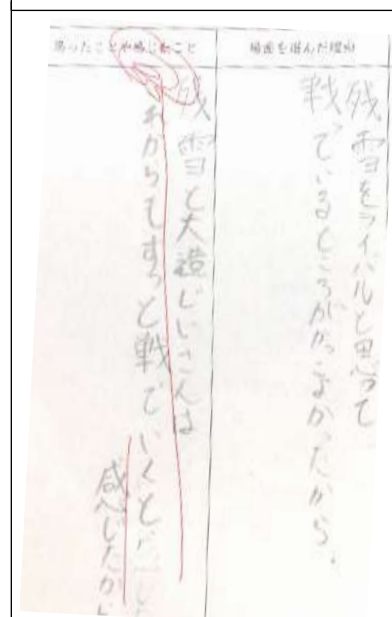 場面を選んだ理由
残雪をライバルと思って
戦っているところがかっこよかったから。
思ったことや感じたこと
残雪と大造じいさんは
これからもずっと戦ていくと
感じたから